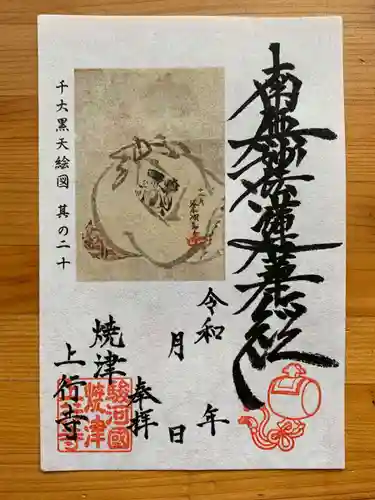 南無妙法蓮華経
千大黒天絵図 其の二十
令和 年
月 日
奉拝
焼津
上行寺
駿河國
焼津